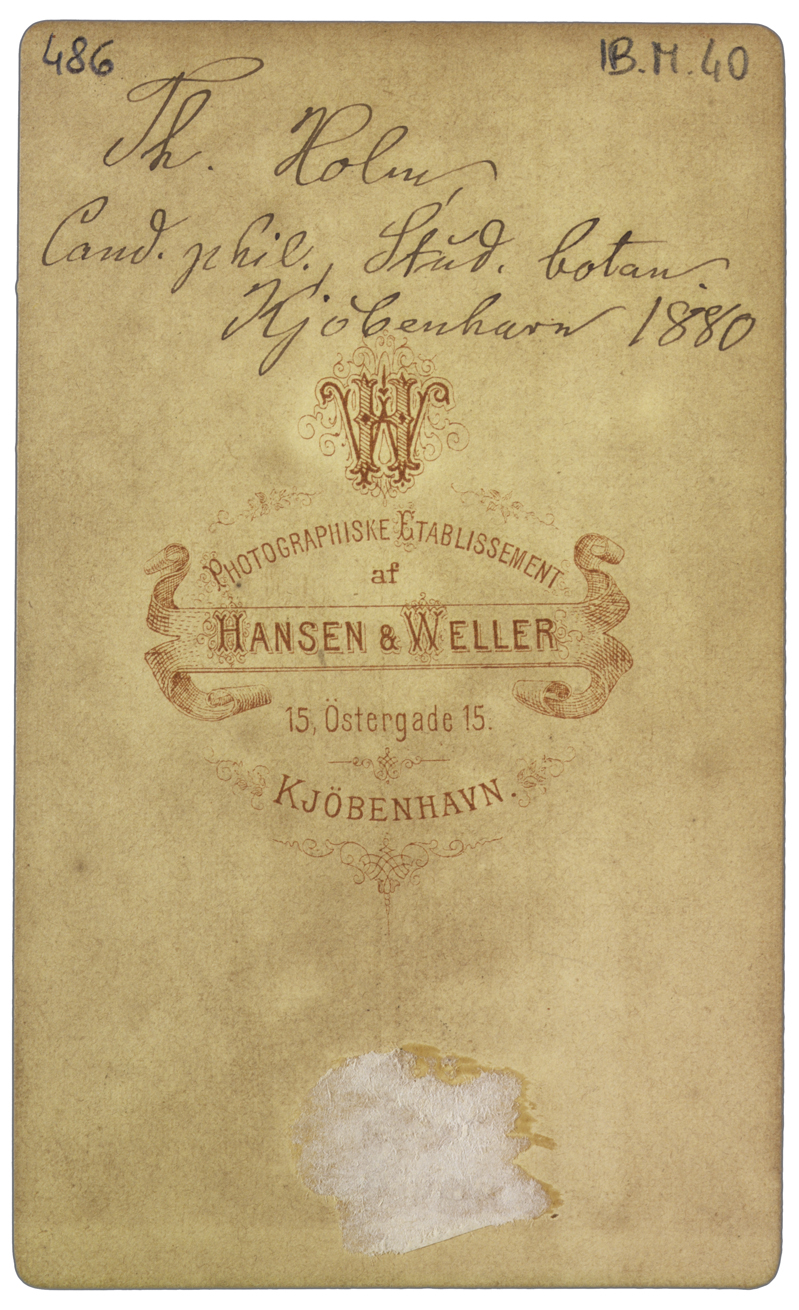 486
B.M.40
Th. Holm,
Cand. phil., Stud. botan.
Kjöbenhavn 1880
HW
PHOTOGRAPHISKE ETABLISSEMENT
af
HANSEN & WELLER
15, Östergade 15.
KJÖBENHAVN.